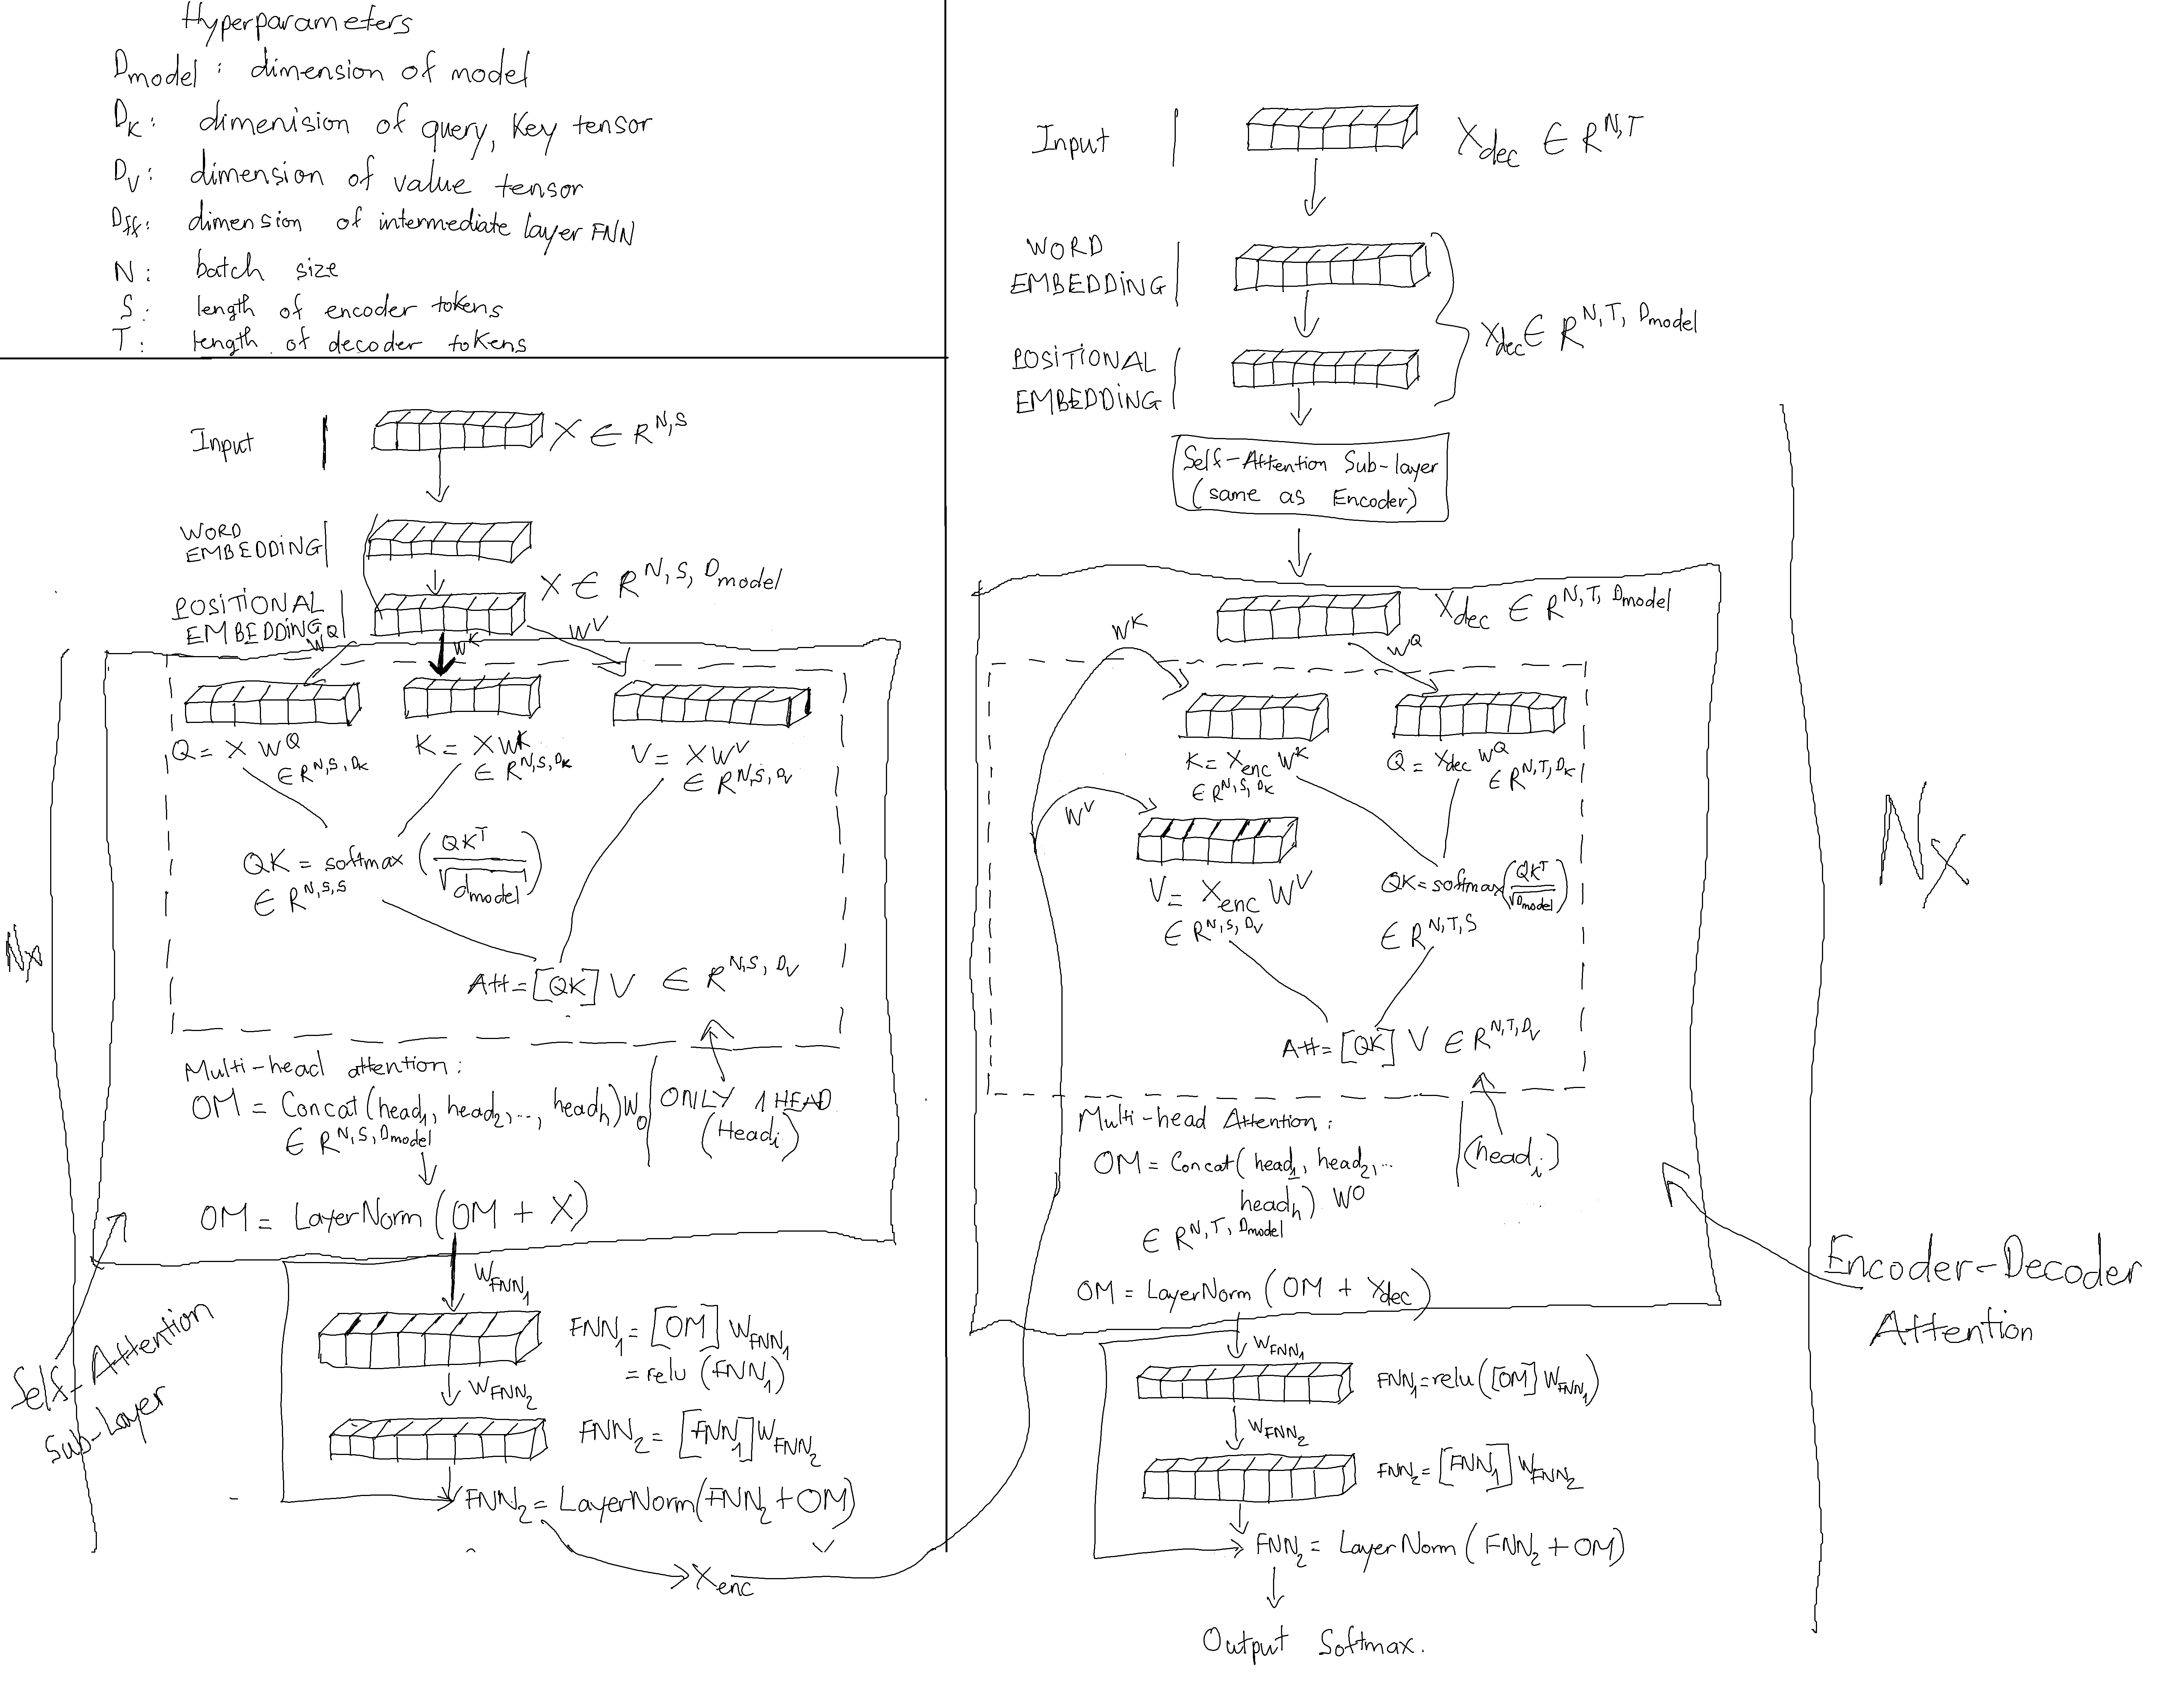 Hyperparameters
Dmodel : dimension of model
DK : dimenision of query, Key tensor
DV : dimension of value tensor
Dff : dimension of intermediate layer FNN
N : batch size
S : length of encoder tokens
T : length of decoder tokens
Input | X ∈ R^N,S
WORD
EMBEDDING |
POSITIONAL
EMBEDDING | X ∈ R^N,S,Dmodel
W^Q W^K W^V
Q = X W^Q
∈ R^N,S,DK
K = X W^K
∈ R^N,S,DK
V = X W^V
∈ R^N,S,DV
QK = softmax (QK^T / √dmodel)
∈ R^N,S,S
Att = [QK] V ∈ R^N,S,DV
Nx
Multi-head attention :
OM = Concat(head1, head2,..., headh)W0
∈ R^N,S,Dmodel
ONLY 1 HEAD
(Headi)
OM = LayerNorm (OM + X)
WFNN1
FNN1 = [OM] WFNN1
= relu (FNN1)
WFNN2
FNN2 = [FNN1] WFNN2
FNN2 = LayerNorm(FNN2 + OM)
Xenc
Self-Attention
Sub-Layer
Input | Xdec ∈ R^N,T
WORD
EMBEDDING |
POSITIONAL
EMBEDDING |
Xdec ∈ R^N,T,Dmodel
Self-Attention Sub-layer
(same as Encoder)
Xdec ∈ R^N,T,Dmodel
W^K W^Q
K = Xenc W^K
∈ R^N,S,DK
Q = Xdec W^Q
∈ R^N,T,DK
W^V
V = Xenc W^V
∈ R^N,S,DV
QK = softmax(QK^T / √Dmodel)
∈ R^N,T,S
Att = [QK] V ∈ R^N,T,DV
Multi-head Attention :
OM = Concat(head1, head2,...
headh) W^O
∈ R^N,T,Dmodel
(headi)
OM = LayerNorm (OM + Xdec)
WFNN1
FNN1 = relu([OM] WFNN1)
WFNN2
FNN2 = [FNN1] WFNN2
FNN2 = LayerNorm (FNN2 + OM)
Output Softmax.
Nx
Encoder-Decoder
Attention